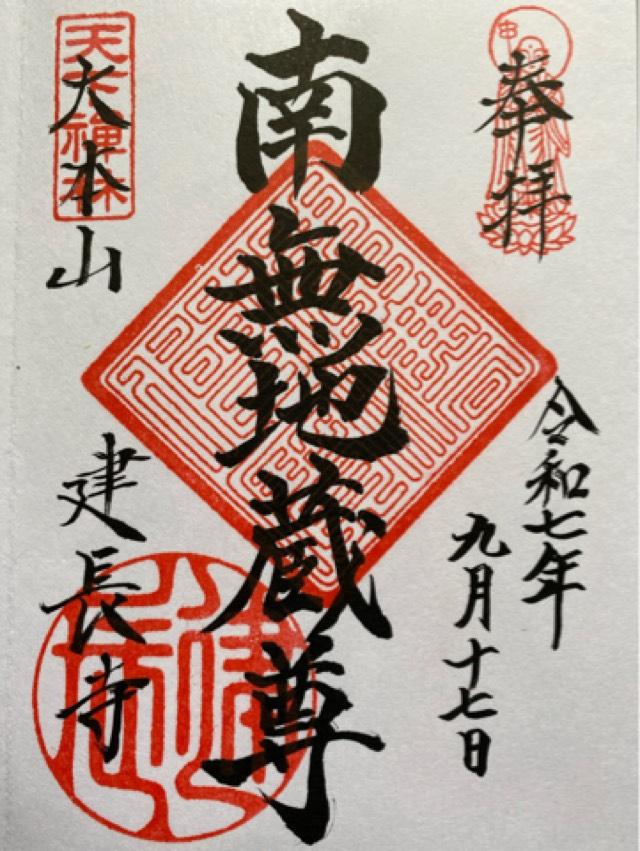 奉拝
令和七年
九月十七日
南無地蔵尊
大本山
建長寺